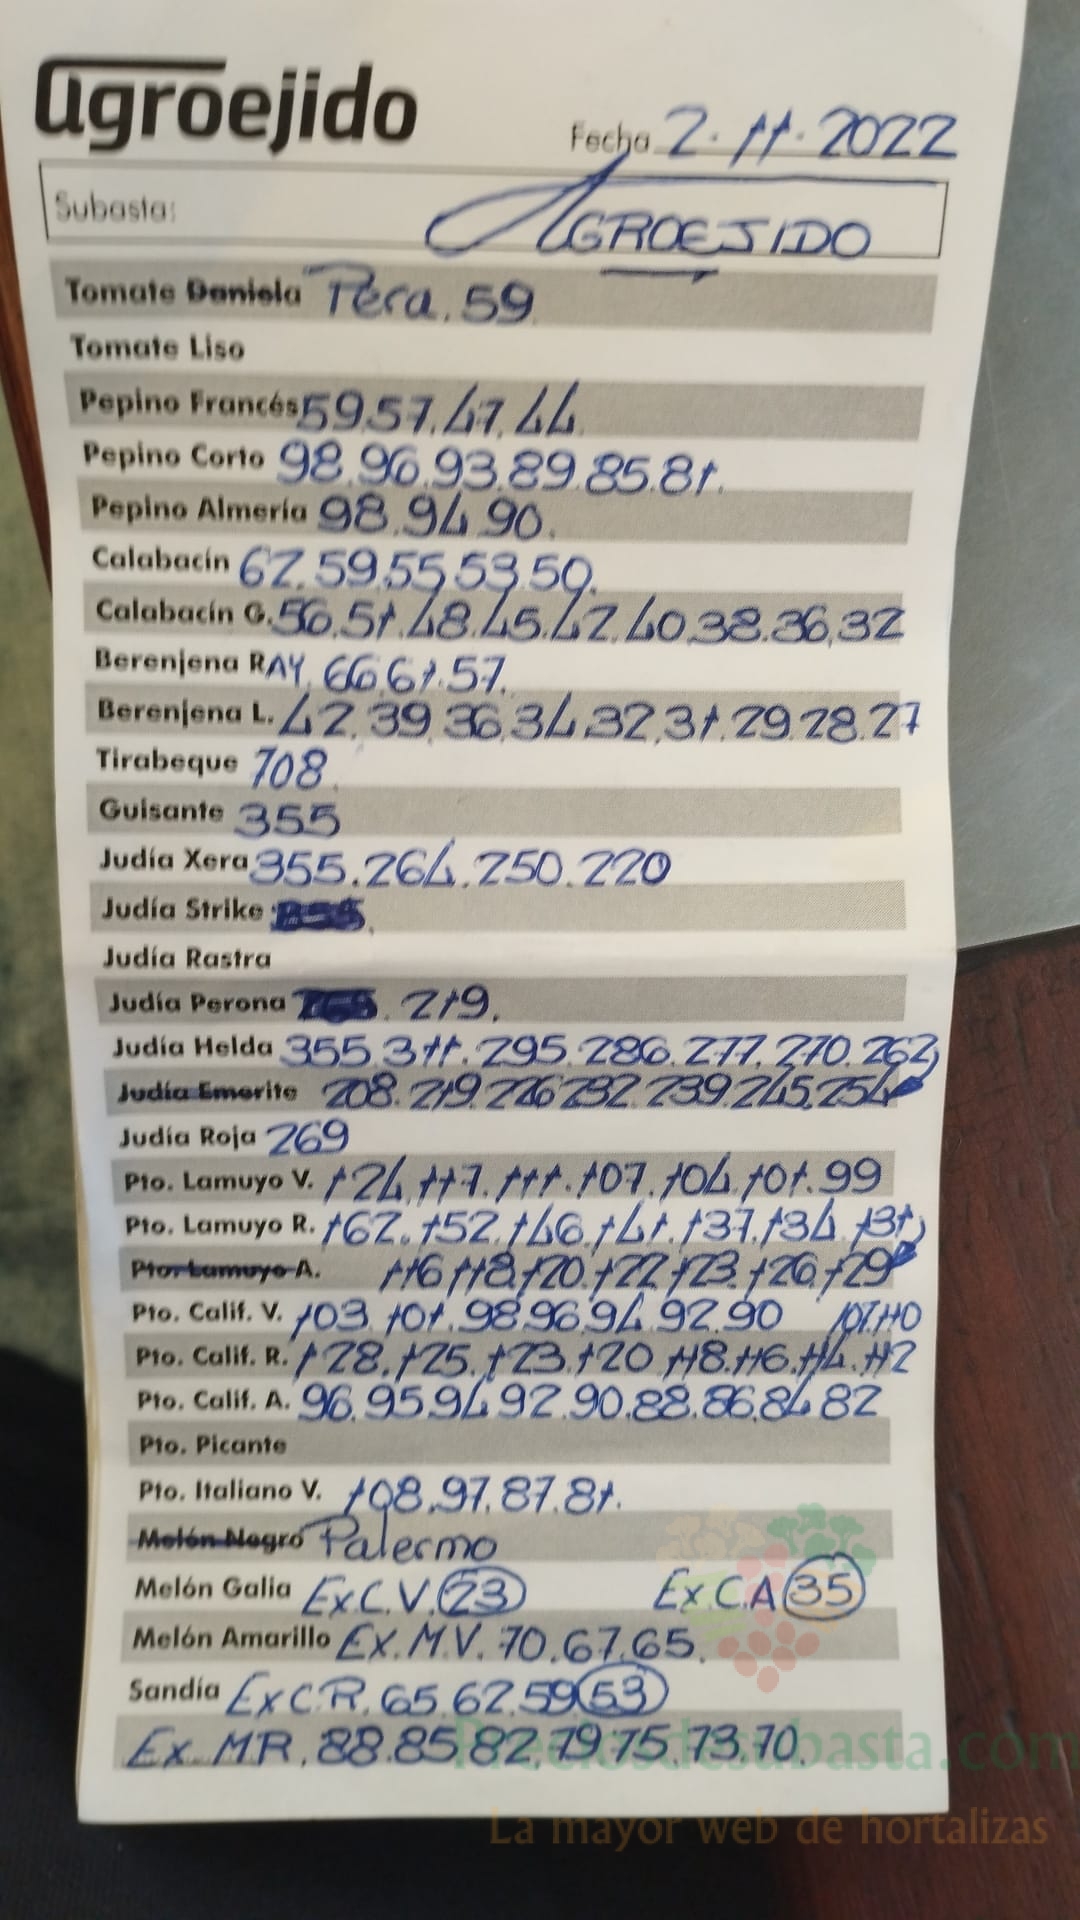 agroejido
Fecha 2.11.2022
Subasta: AGROEJIDO
Tomate Daniela Pera. 59
Tomate Liso
Pepino Francés 59.57.47.44
Pepino Corto 98.96.93.89.85.81.
Pepino Almería 98.94.90.
Calabacín 62.59.55.53.50.
Calabacín G. 56.51.48.45.42.40.38.36.32
Berenjena RAY. 66.61.57.
Berenjena L. 42.39.36.34.32.31.29.28.27
Tirabeque 708
Guisante 355
Judía Xera 355.264.250.220
Judía Strike
Judía Rastra
Judía Perona 219.
Judía Helda 355.311.295.286.277.270.262
Judía Emerite 208.219.226.232.239.245.254
Judía Roja 269
Pto. Lamuyo V. 124.117.111.107.104.101.99
Pto. Lamuyo R. 162.152.146.141.137.134.131
Pto. Lamuyo A. 116.118.120.122.123.126.129
Pto. Calif. V. 103.101.98.96.94.92.90 107.110
Pto. Calif. R. 128.125.123.120.118.116.114.112
Pto. Calif. A. 96.95.94.92.90.88.86.84.82
Pto. Picante
Pto. Italiano V. 108.97.87.81.
Melón Negro Palermo
Melón Galia Ex.C.V. 23 Ex.C.A 35
Melón Amarillo Ex.M.V. 70.67.65.
Sandía Ex C.R. 65.62.59 53
Ex. MR. 88.85.82.79.75.73.70.
Preciosdesubasta.com
La mayor web de hortalizas